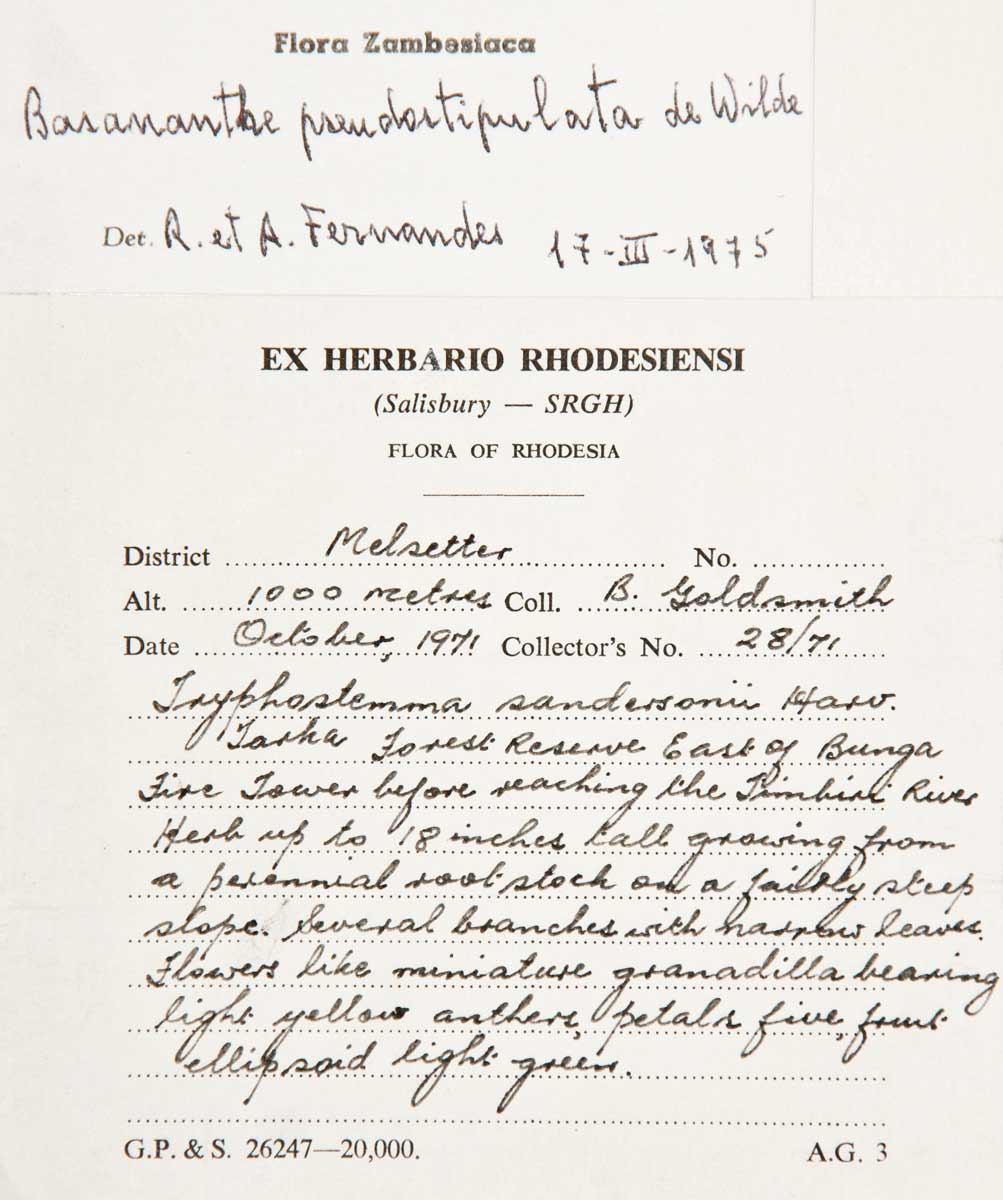 Flora Zambesiaca
Basananthe pseudostipulata de Wilde
Det. R. et A. Fernandes 17-III-1975
EX HERBARIO RHODESIENSI
(Salisbury — SRGH)
FLORA OF RHODESIA
District Melsetter No.
Alt. 1000 metres Coll. B. Goldsmith
Date October, 1971 Collector's No. 28/71
Tryphostemma sandersonii Harv.
Tarka Forest Reserve East of Bunga
Fire Tower before reaching the Timbiri River
Herb up to 18 inches tall growing from
a perennial rootstock on a fairly steep
slope. Several branches with narrow leaves.
Flowers like miniature granadilla bearing
light yellow anthers, petals five, fruit
ellipsoid light green.
G.P. & S. 26247—20,000. A.G. 3